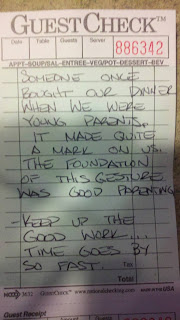 GUESTCHECK™
Date Table Guests Server
886342
APPT-SOUP/SAL-ENTREE-VEG/POT-DESSERT-BEV
SOMEONE ONCE
BOUGHT OUR DINNER
WHEN WE WERE
YOUNG PARENTS.
IT MADE QUITE
A MARK ON US.
THE FOUNDATION
OF THIS GESTURE
WAS GOOD PARENTING
- KEEP UP THE
GOOD WORK...
TIME GOES BY
SO FAST.
Tax
Total
3632 GUESTCHECK™ MADE IN USA
Guest Receipt